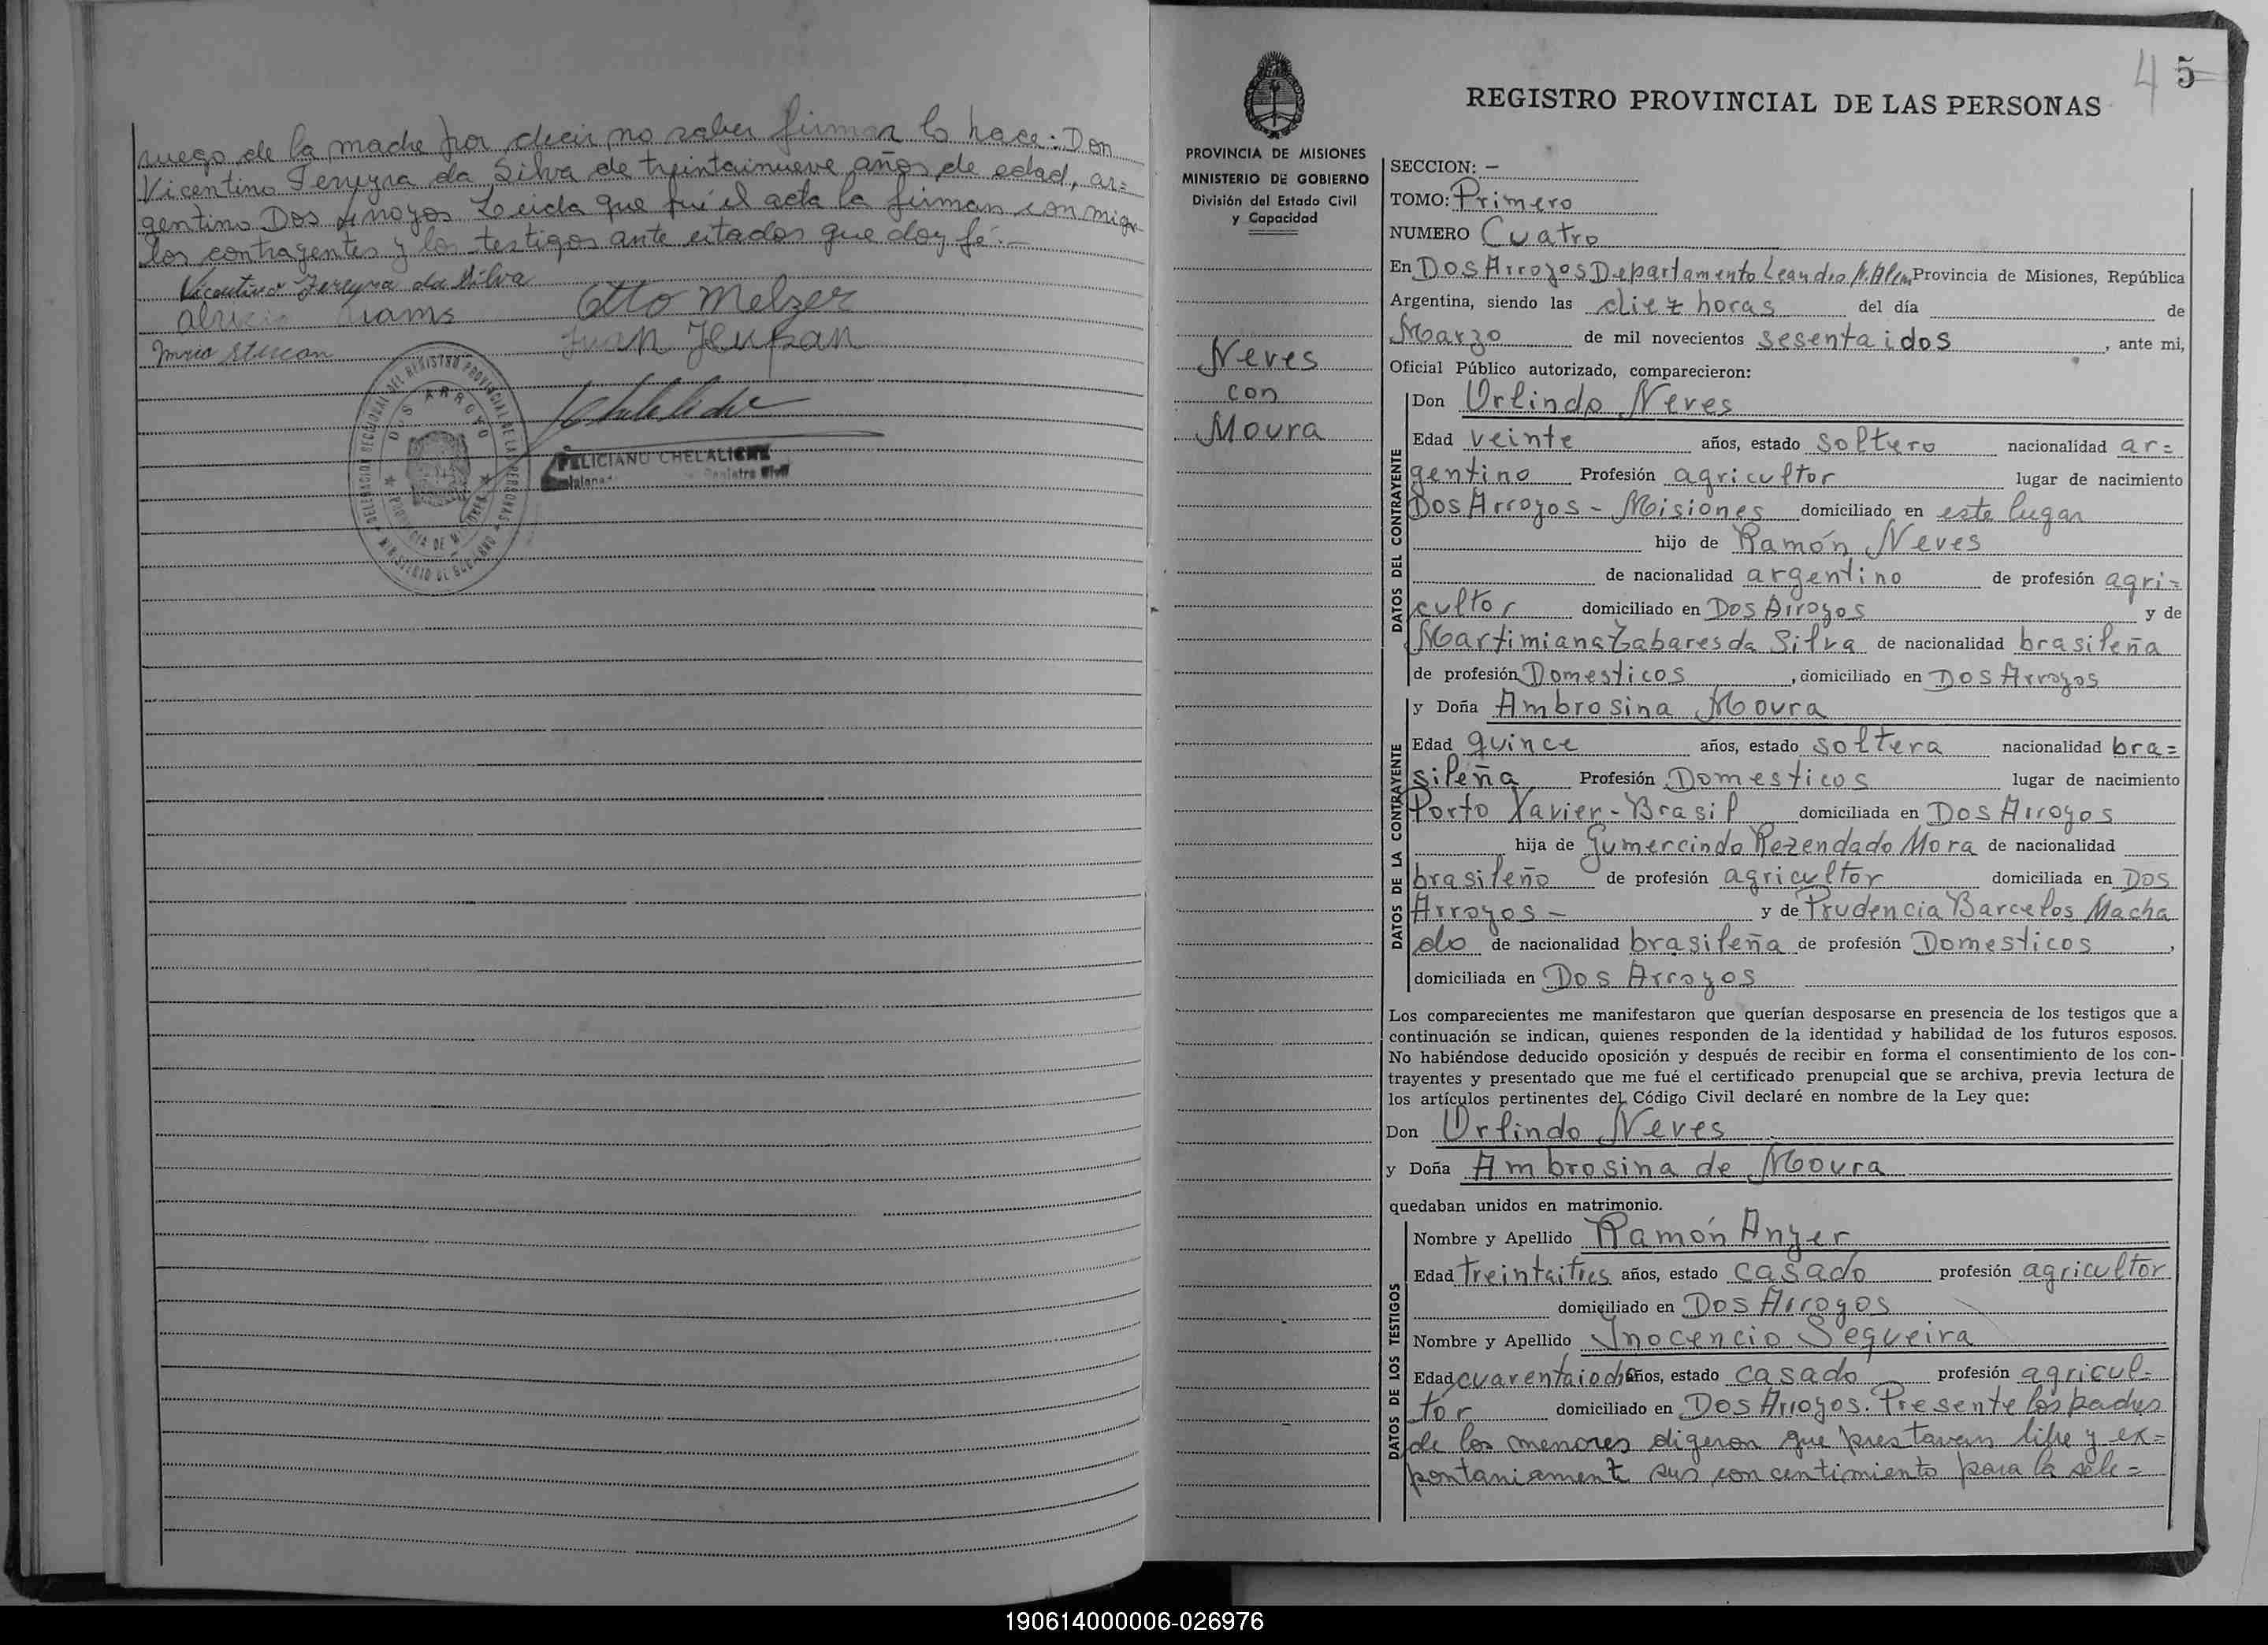 ruego de la madre por decir no saber firmar lo hace: Don
Vicentino Fereyra da Silva de treintainueve años de edad, ar=
gentino Dos Arroyos Leida que fué el acta la firman conmigo
los contrayentes y los testigos ante citados que doy fé.-
Vicentino Fereyra da Silva
Otto Melzer
Juan
DELEGACION SECCIONAL DEL REGISTRO PROVINCIAL DE LAS PERSONAS
DOS ARROYOS
PROVINCIA DE MISIONES
MINISTERIO DE GOBIERNO
FELICIANO CHELALICHE
Registro Civil
4 5
REGISTRO PROVINCIAL DE LAS PERSONAS
PROVINCIA DE MISIONES
MINISTERIO DE GOBIERNO
División del Estado Civil
y Capacidad
Neves
con
Moura
SECCION: -
TOMO: Primero
NUMERO Cuatro
En Dos Arroyos Departamento Leandro N. Alem Provincia de Misiones, República
Argentina, siendo las diez horas del día de
Marzo de mil novecientos sesentaidos, ante mi,
Oficial Público autorizado, comparecieron:
DATOS DEL CONTRAYENTE
Don Orlindo Neves
Edad veinte años, estado soltero nacionalidad ar=
gentino Profesión agricultor lugar de nacimiento
Dos Arroyos - Misiones domiciliado en este lugar
hijo de Ramón Neves
de nacionalidad argentino de profesión agri=
cultor domiciliado en Dos Arroyos y de
Martimiana Tabares da Silva de nacionalidad brasileña
de profesión Domesticos, domiciliado en Dos Arroyos
DATOS DE LA CONTRAYENTE
y Doña Ambrosina Moura
Edad quince años, estado soltera nacionalidad bra=
sileña Profesión Domesticos lugar de nacimiento
Porto Xavier - Brasil domiciliada en Dos Arroyos
hija de Gumercindo Rezendado Mora de nacionalidad
brasileño de profesión agricultor domiciliada en Dos
Arroyos - y de Prudencia Barcelos Macha
do de nacionalidad brasileña de profesión Domesticos,
domiciliada en Dos Arroyos
Los comparecientes me manifestaron que querían desposarse en presencia de los testigos que a
continuación se indican, quienes responden de la identidad y habilidad de los futuros esposos.
No habiéndose deducido oposición y después de recibir en forma el consentimiento de los con-
trayentes y presentado que me fué el certificado prenupcial que se archiva, previa lectura de
los artículos pertinentes del Código Civil declaré en nombre de la Ley que:
Don Orlindo Neves
y Doña Ambrosina de Moura
quedaban unidos en matrimonio.
DATOS DE LOS TESTIGOS
Nombre y Apellido Ramón Anyer
Edad treintaitres años, estado casado profesión agricultor
domiciliado en Dos Arroyos
Nombre y Apellido Ynocencio Sequeira
Edad cuarentaiocho años, estado casado profesión agricul-
tor domiciliado en Dos Arroyos. Presente los padres
de los menores digeron que prestavan libre y ex=
pontaniament sus concentimiento para la sele=
190614000006-026976